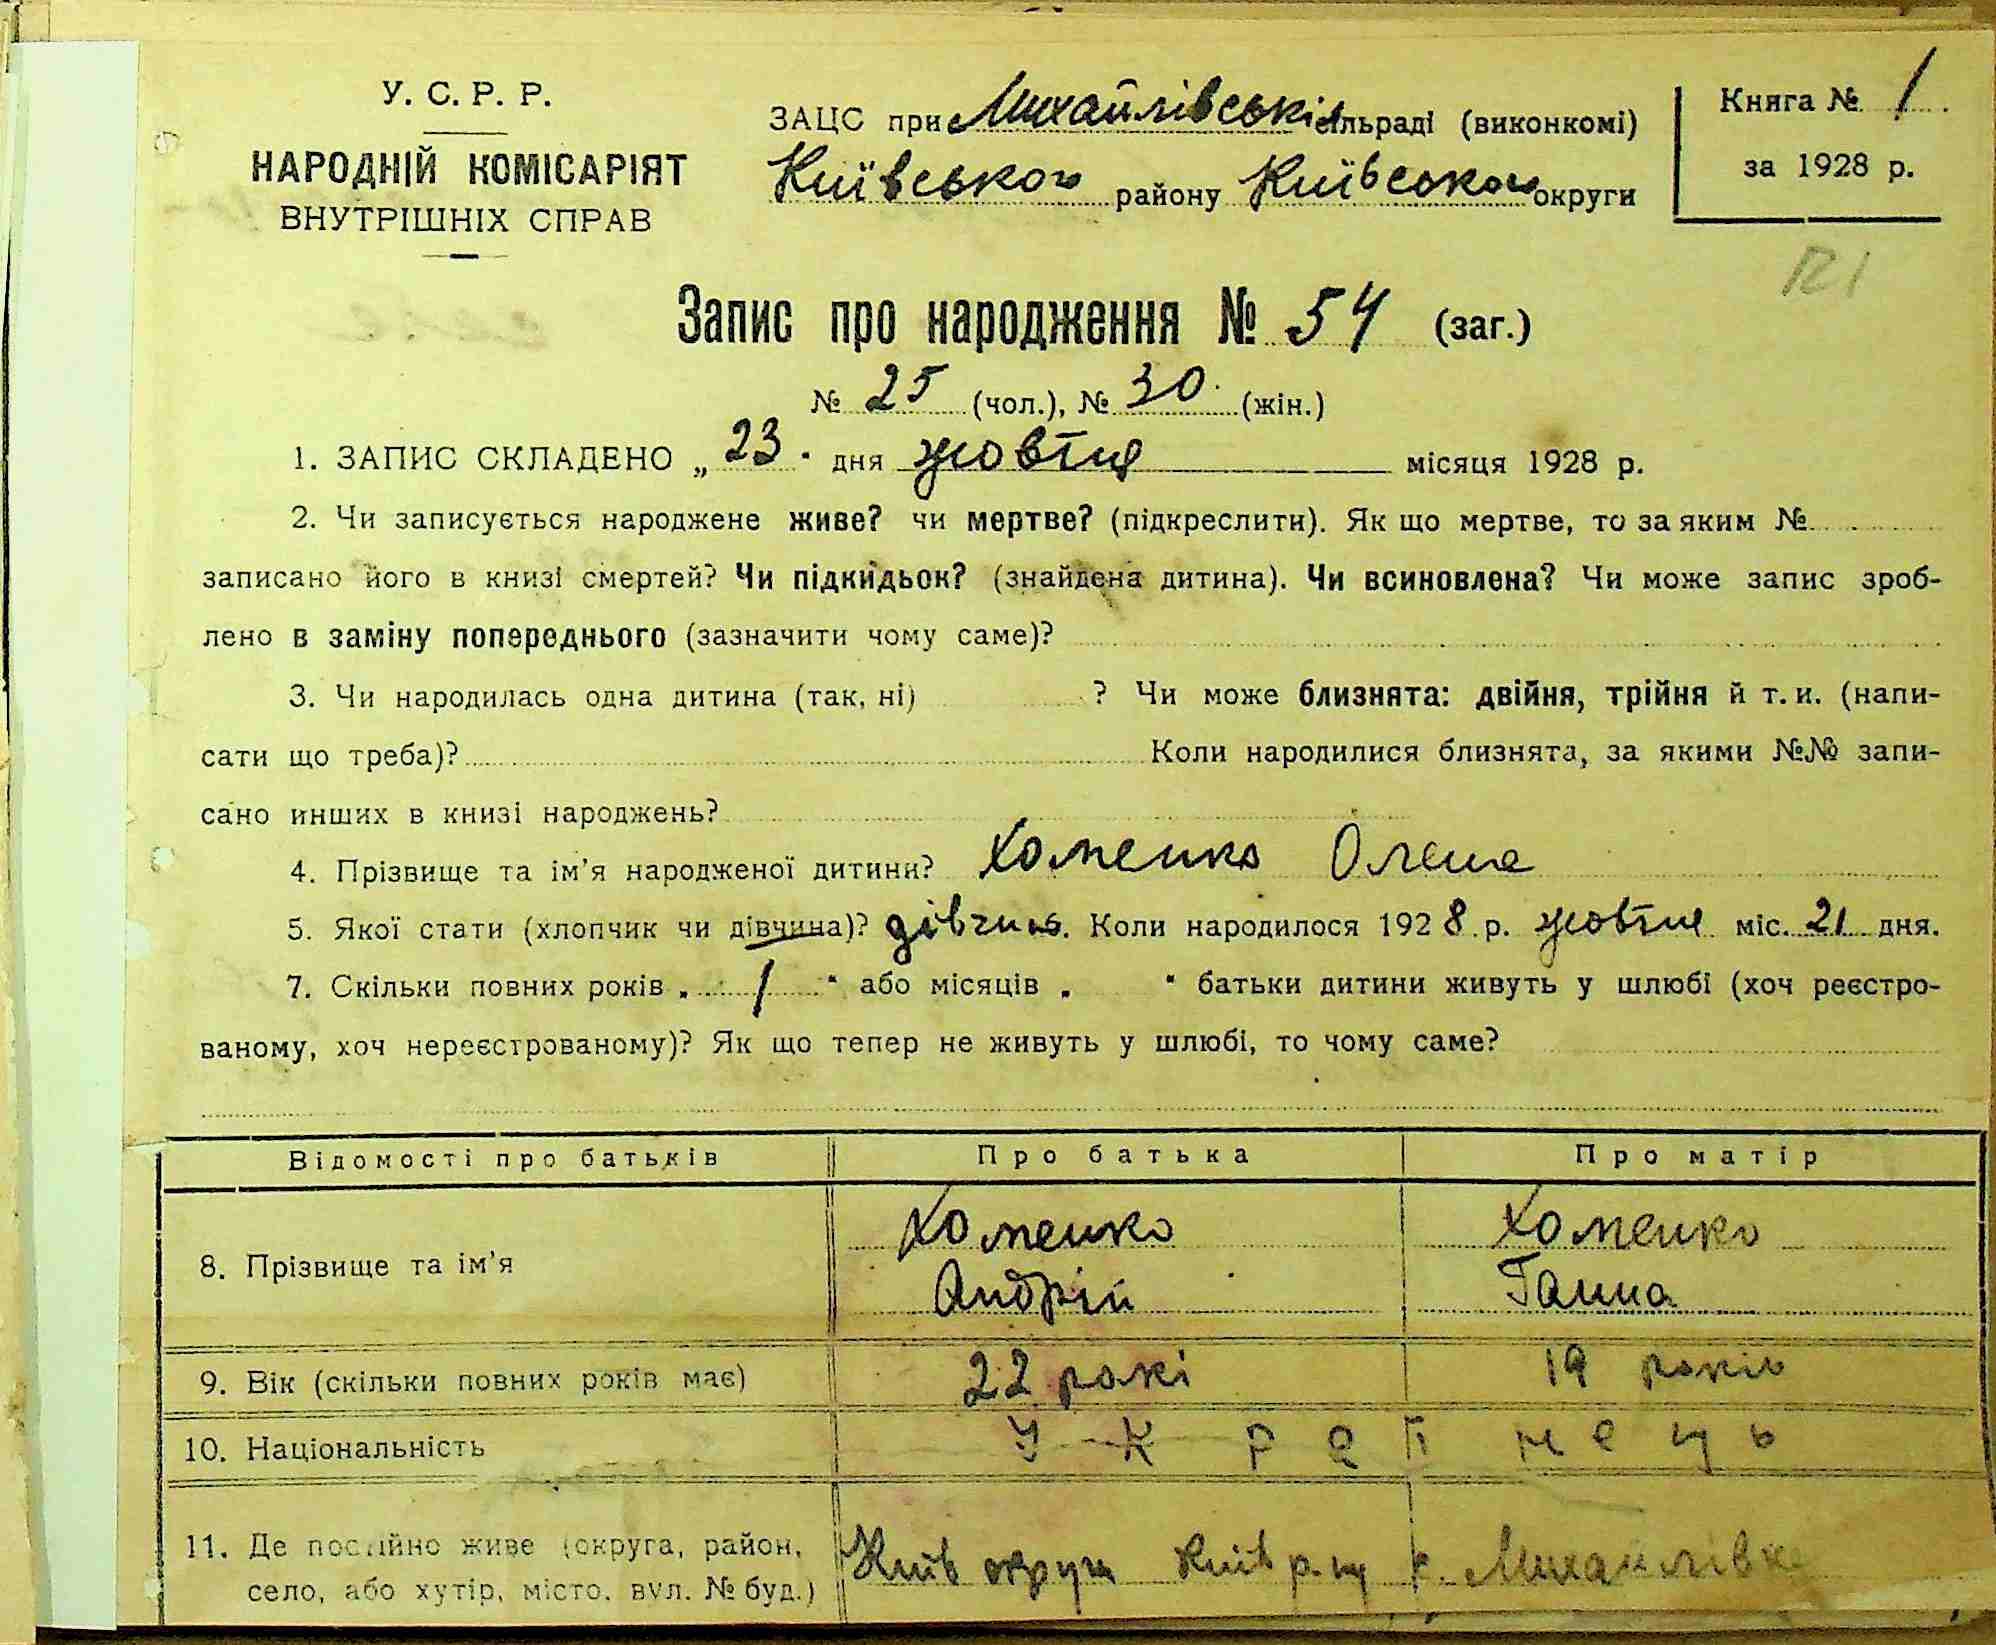 У. С. Р. Р.
НАРОДНІЙ КОМІСАРІЯТ
ВНУТРІШНІХ СПРАВ
ЗАЦС при Михайлівській сільраді (виконкомі)
Київського району Київського округи
Книга № 1.
за 1928 р.
121
Запис про народження № 54 (заг.)
№ 25 (чол.), № 30 (жін.)
1. ЗАПИС СКЛАДЕНО „ 23 " дня жовтня місяця 1928 р.
2. Чи записується народжене живе? чи мертве? (підкреслити). Як що мертве, то за яким №
записано його в книзі смертей? Чи підкидьок? (знайдена дитина). Чи всиновлена? Чи може запис зроб-
лено в заміну попереднього (зазначити чому саме)?
3. Чи народилась одна дитина (так, ні) ? Чи може близнята: двійня, трійня й т. и. (напи-
сати що треба)? Коли народилися близнята, за якими №№ запи-
сано инших в книзі народжень?
4. Прізвище та ім'я народженої дитини? Хоменко Олена
5. Якої стати (хлопчик чи дівчина)? дівчина. Коли народилося 1928 р. жовтня міс. 21 дня.
7. Скільки повних років „ 1 " або місяців „ " батьки дитини живуть у шлюбі (хоч реєстро-
ваному, хоч нереєстрованому)? Як що тепер не живуть у шлюбі, то чому саме?
Відомості про батьків Про батька Про матір
8. Прізвище та ім'я Хоменко Андрій Хоменко Ганна
9. Вік (скільки повних років має) 22 рокі 19 років
10. Національність Українець
11. Де постійно живе (округа, район, село, або хутір, місто, вул. № буд.) Київ округи Київ р-ну с. Михайлівка